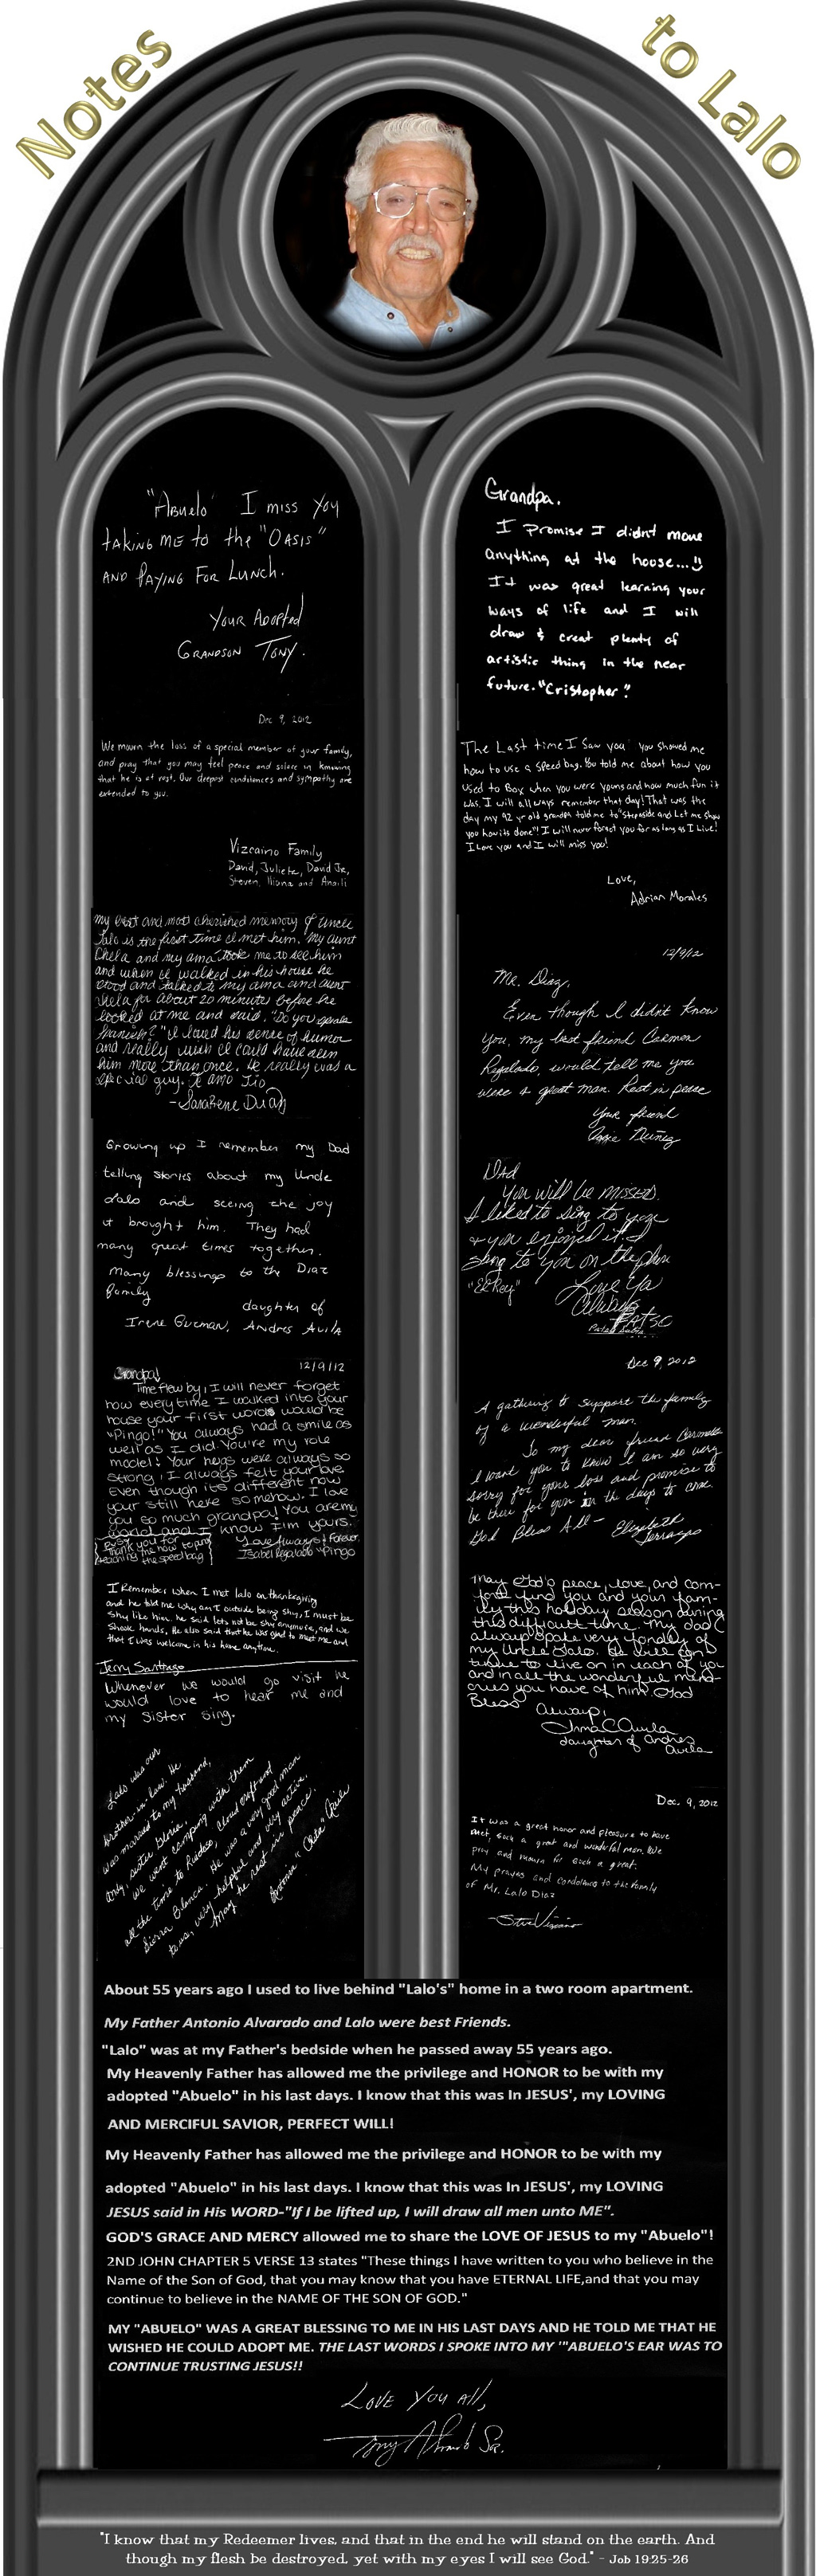 Notes to Lalo
"Abuelo" I miss you
taking me to the "Oasis"
and paying for lunch.
Your Adopted
Grandson Tony.
Dec 9, 2012
We mourn the loss of a special member of your family,
and pray that you may feel peace and solace in knowing
that he is at rest. Our deepest condolences and sympathy are
extended to you.
Vizcaino Family
David, Juliete, David Jr,
Steven, Iliana and Anaili
my best and most cherished memory of Uncle
Lalo is the first time I met him. My aunt
Chela and my ama took me to see him
and when I walked in his house he
stood and talked to my ama and aunt
Chela for about 20 minutes before he
looked at me and said, "Do you speak
Spanish?" I loved his sense of humor
and really wish I could have seen
him more than once. He really was a
special guy. Te amo Tio
-SaraRene Diaz
Growing up I remember my Dad
telling stories about my Uncle
Lalo and seeing the joy
it brought him. They had
many great times together.
Many blessings to the Diaz
family
daughter of
Irene Guzman, Andres Avila
12/9/12
Grandpa!
Time flew by, I will never forget
how everytime I walked into your
house your first words would be
"Pingo!" You always had a smile as
well as I did. You're my role
model! Your hugs were always so
strong, I always felt your love
Even though its different now
your still here somehow. I love
you so much grandpa! You are my
world and I know I'm yours.
Love Always & Forever,
Isabel Regalado "Pingo
thank you for
teaching me how to
the speed bag
I Remember when I met lalo on thanksgiving
and he told me why am I outside being shy, I must be
shy like him. he said lets not be shy anymore, and we
shook hands, He also said that he was glad to meet me and
that I was welcome in his home anytime.
Jerry Santiago
Whenever we would go visit he
would love to hear me and
my sister sing.
Lalo was our
brother-in-law. He
was married to my husband,
sister Gloria.
we went camping with them
all the time to Ruidoso, Cloud croft and
Sierra Blanca. He was a very good man
to us, very helpful and very active.
May he rest in peace.
Grandpa.
I Promise I didn't move
anything at the house...
It was great learning your
ways of life and I will
draw & creat plenty of
artistic thing in the near
future. "Cristopher".
The Last time I Saw you you showed me
how to use a speed bag. You told me about how you
used to Box when you were young and how much fun it
was. I will all ways remember that day! That was the
day my 92 yr old grandpa told me to "Step aside and Let me show
you how its done"! I will never forget you for as long as I Live!
I Love you and I will miss you!
Love,
Adrian Morales
12/9/12
Mr. Diaz,
Even though I didn't know
you, my best friend Carmen
Regalado, would tell me you
were a great man. Rest in peace
Your friend
Dad
You will be missed.
I liked to sing to you
& you enjoyed it. I
sang to you on the phone
"El Rey"
Love Ya
Always
Dec 9, 2012
A gathering to support the family
of a wonderful man.
To my dear friend Carmen
I want you to know I am so very
sorry for your loss and promise to
be there for you in the days to come.
God Bless All - Elizabeth
May God's peace, love, and com-
fort find you and your fam-
ily this holiday season during
this difficult time. My dad
always spoke very fondly of
my Uncle Lalo. He will con-
tinue to live on in each of you
and in all the wonderful mem-
ories you have of him. God
Bless
Always,
Irma C Avila
daughter of Andres
Avila
Dec. 9, 2012
It was a great honor and pleasure to have
met, such a great and wonderful man. We
pray and mourn for such a great.
My prayers and condolences to the family
of Mr. Lalo Diaz
About 55 years ago I used to live behind "Lalo's" home in a two room apartment.
My Father Antonio Alvarado and Lalo were best Friends.
"Lalo" was at my Father's bedside when he passed away 55 years ago.
My Heavenly Father has allowed me the privilege and HONOR to be with my
adopted "Abuelo" in his last days. I know that this was In JESUS', my LOVING
AND MERCIFUL SAVIOR, PERFECT WILL!
My Heavenly Father has allowed me the privilege and HONOR to be with my
adopted "Abuelo" in his last days. I know that this was In JESUS', my LOVING
JESUS said in His WORD-"If I be lifted up, I will draw all men unto ME".
GOD'S GRACE AND MERCY allowed me to share the LOVE OF JESUS to my "Abuelo"!
2ND JOHN CHAPTER 5 VERSE 13 states "These things I have written to you who believe in the
Name of the Son of God, that you may know that you have ETERNAL LIFE,and that you may
continue to believe in the NAME OF THE SON OF GOD."
MY "ABUELO" WAS A GREAT BLESSING TO ME IN HIS LAST DAYS AND HE TOLD ME THAT HE
WISHED HE COULD ADOPT ME. THE LAST WORDS I SPOKE INTO MY '"ABUELO'S EAR WAS TO
CONTINUE TRUSTING JESUS!!
Love you all,
"I know that my Redeemer lives, and that in the end he will stand on the earth. And
though my flesh be destroyed, yet with my eyes I will see God." - Job 19:25-26